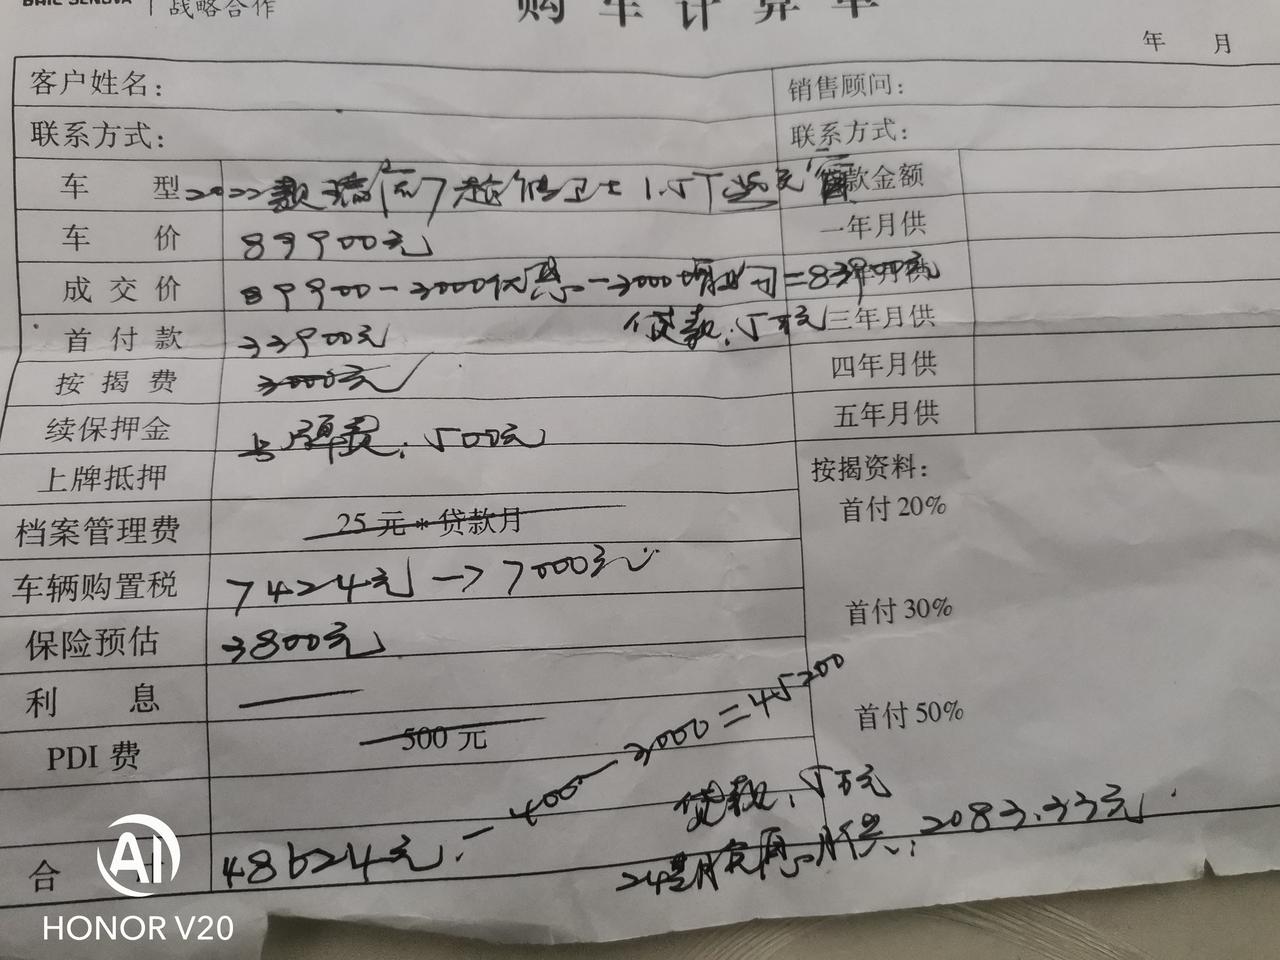 BAIC SENOVA | 战略合作
购车计算单
年 月
客户姓名：
销售顾问：
联系方式：
联系方式：
车 型 2022款 瑞虎7超能卫士1.5T 款金额
车 价 89900元
一年月供
成交价 89900-3000优惠-3000 =83900元
首付款 33900元 贷款：5万元
三年月供
按揭费 3000元
四年月供
续保押金 上牌费：500元
五年月供
上牌抵押
按揭资料：
首付20%
档案管理费 25元*贷款月
车辆购置税 7424元→7000元
首付30%
保险预估 3800元
利 息 —
首付50%
PDI费 500元
贷款：5万元
合 计 48624元-400-3000=45200
24 月 月供：2083.33元
AI
HONOR V20